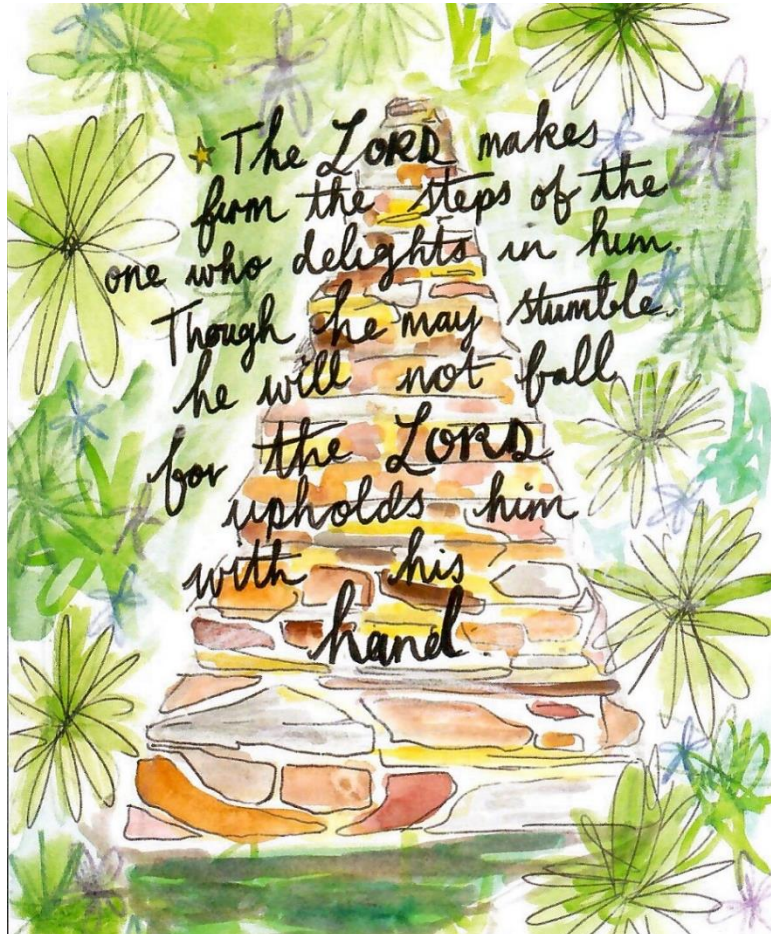 The LORD makes
firm the steps of the
one who delights in him.
Though he may stumble
he will not fall
for the LORD
upholds him
with his
hand.